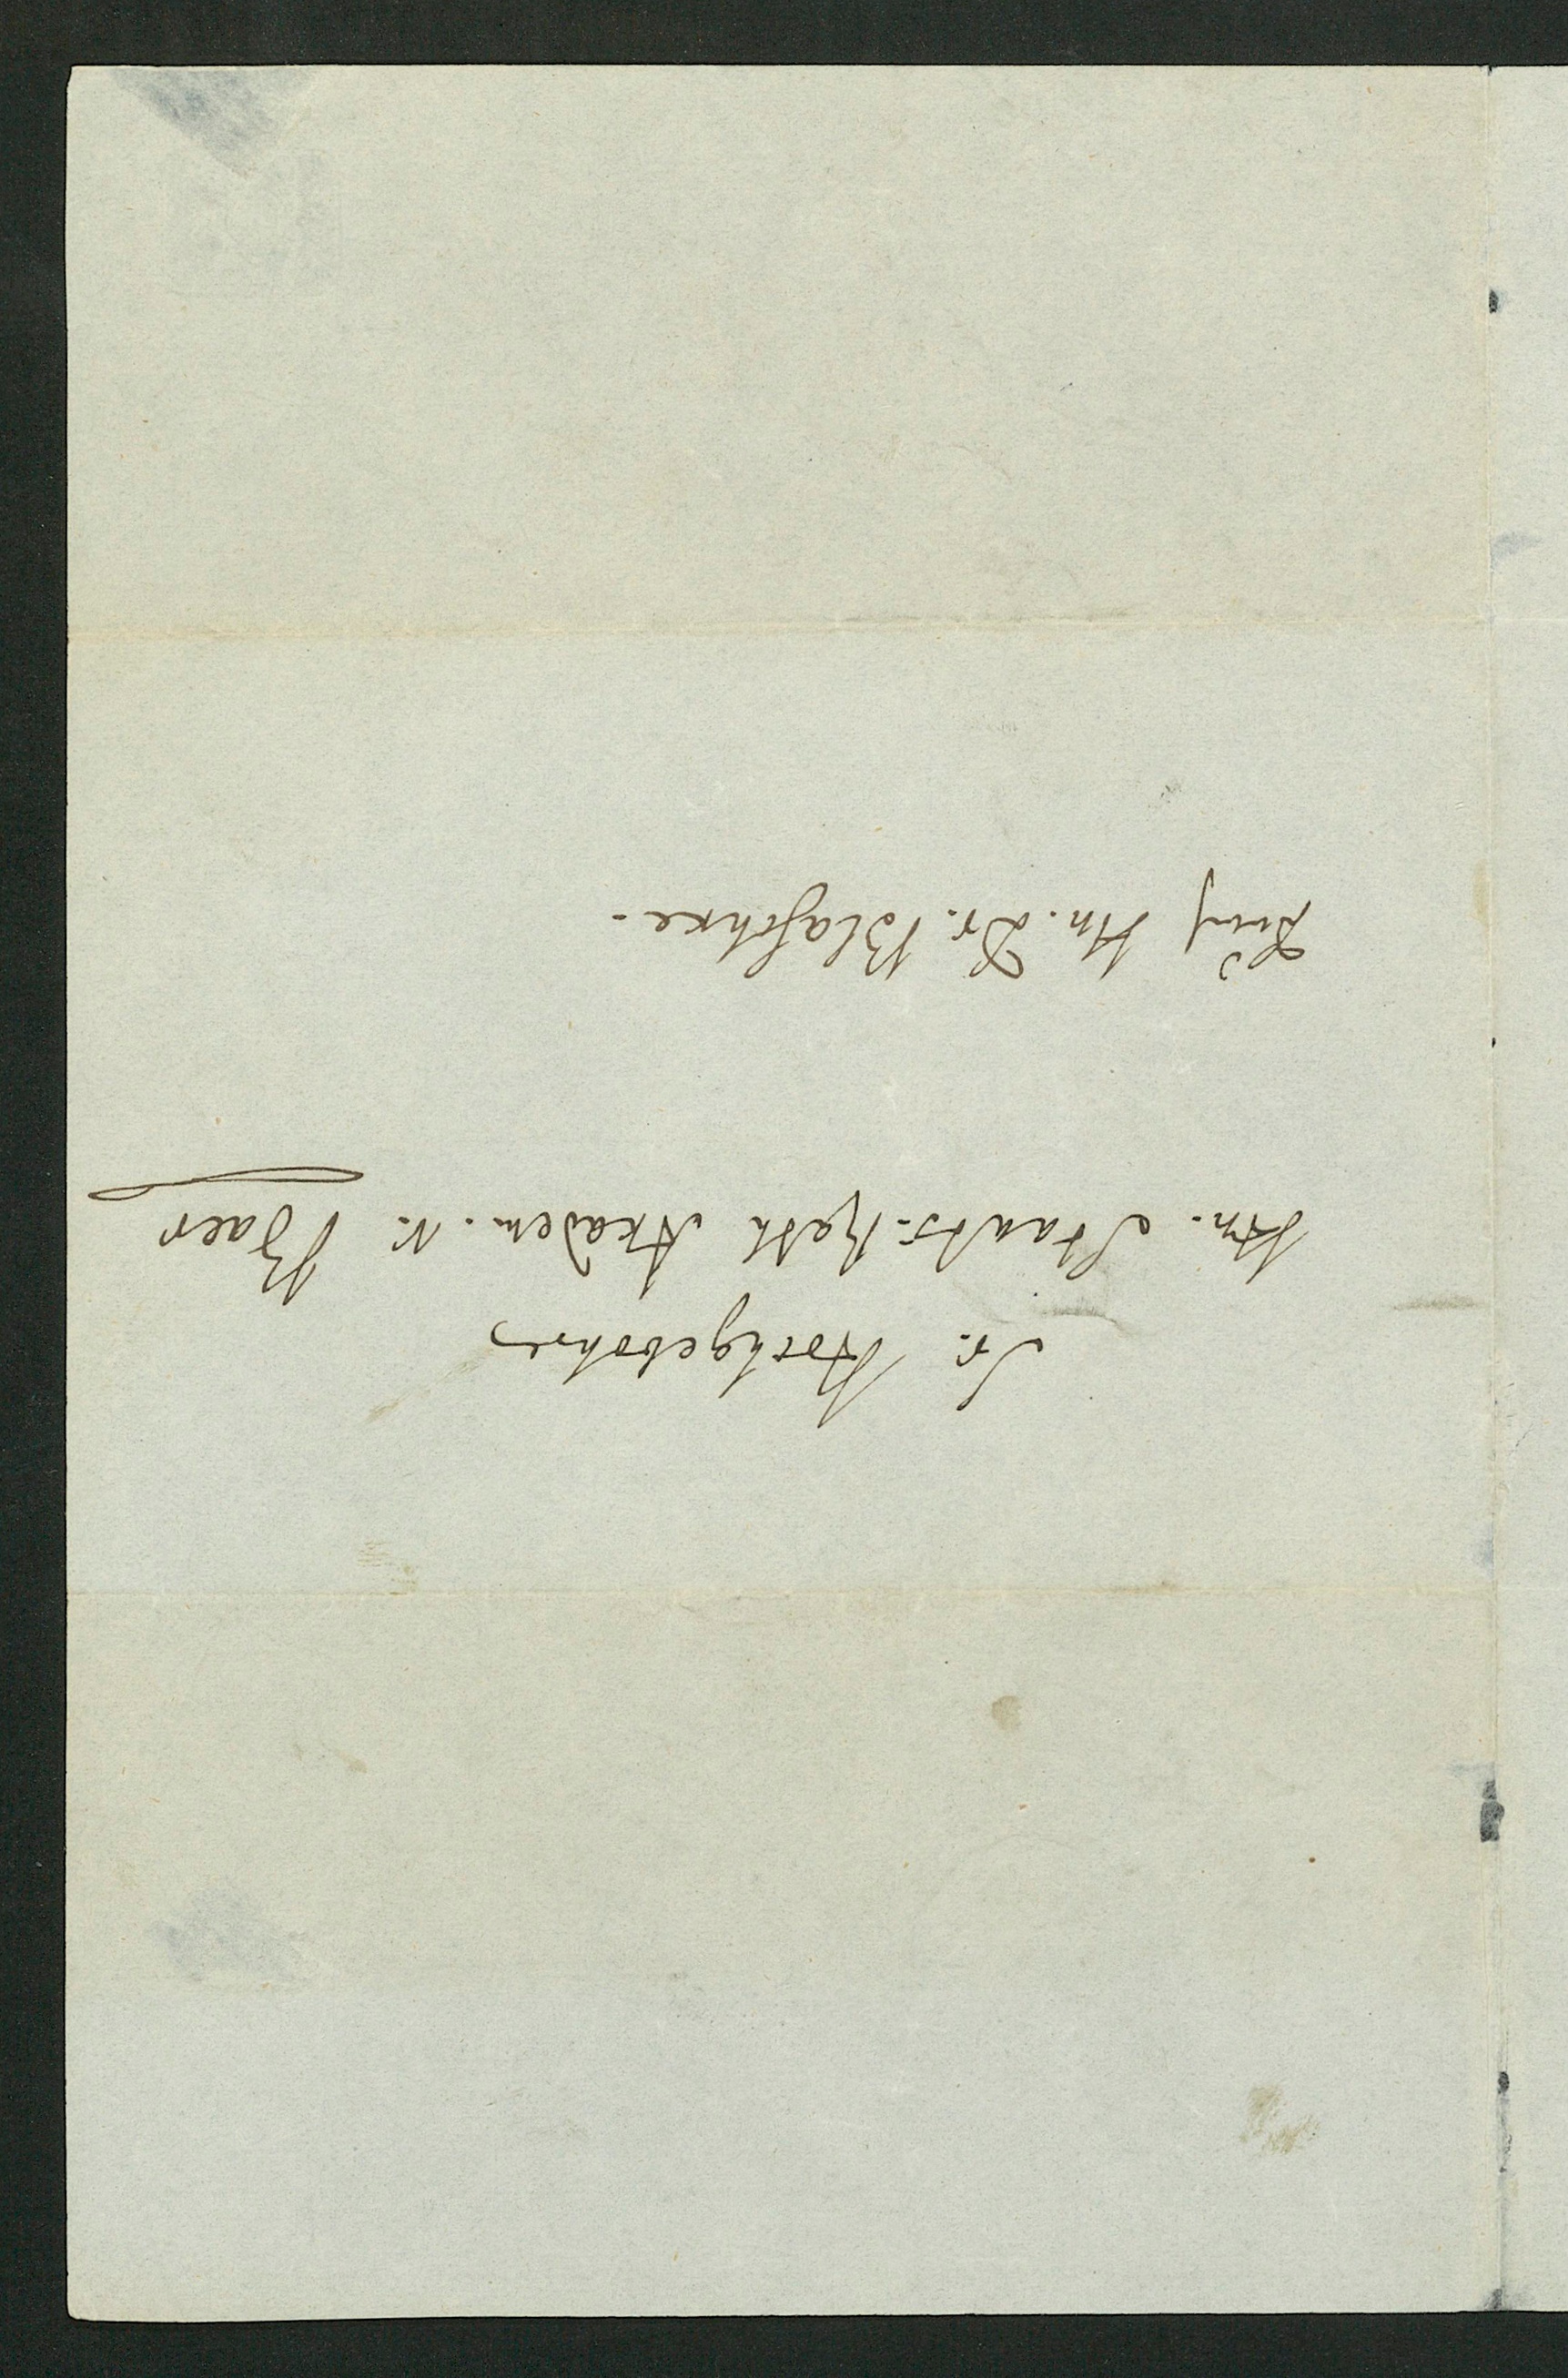 Sr. Hochgebohren
Hn. Staats-Rath Akadem. v. Baer
Durch Hn. Dr. Blaschke.